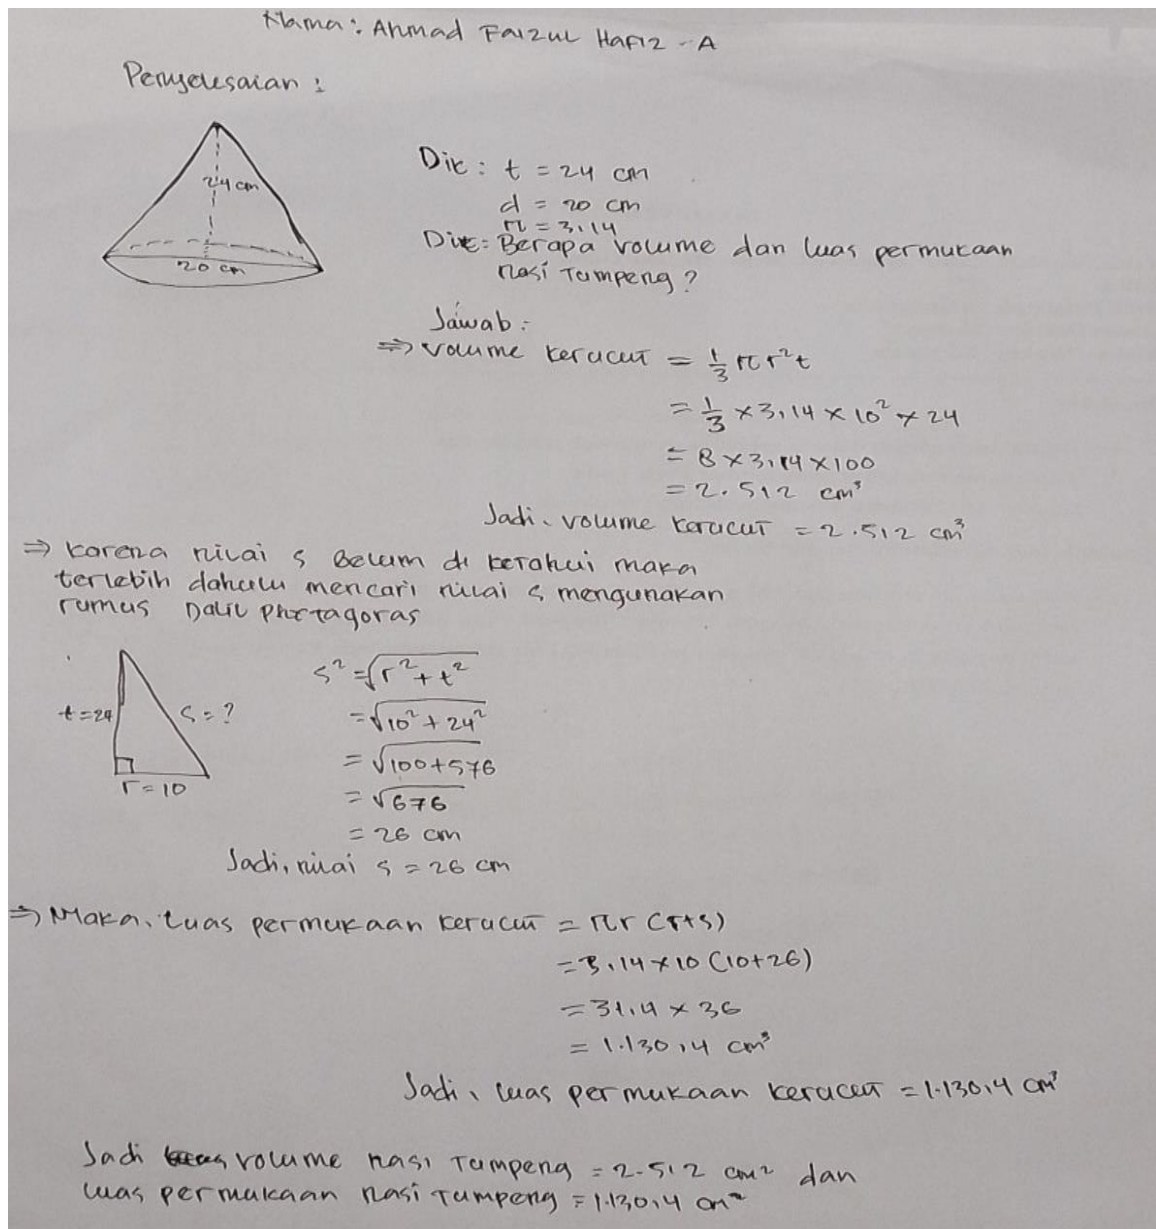 Nama : Ahmad Faizul Hafiz - A
Penyelesaian :
24 cm
20 cm
Dik : t = 24 cm
d = 20 cm
π = 3,14
Dit : Berapa volume dan luas permukaan
nasi Tumpeng ?
Jawab :
⇒ volume kerucut = 1/3 πr²t
= 1/3 × 3,14 × 10² × 24
= 8 × 3,14 × 100
= 2.512 cm³
Jadi, volume kerucut = 2.512 cm³
⇒ karena nilai s Belum di ketahui maka
terlebih dahulu mencari nilai s mengunakan
rumus Dalil Phytagoras
t = 24
s = ?
r = 10
s² = √r² + t²
= √10² + 24²
= √100 + 576
= √676
= 26 cm
Jadi, nilai s = 26 cm
⇒ Maka, Luas permukaan kerucut = πr (r+s)
= 3,14 × 10 (10+26)
= 31,4 × 36
= 1.130,4 cm³
Jadi, luas permukaan kerucut = 1.130,4 cm³
Jadi volume nasi Tumpeng = 2.512 cm² dan
luas permukaan nasi Tumpeng = 1.130,4 cm²